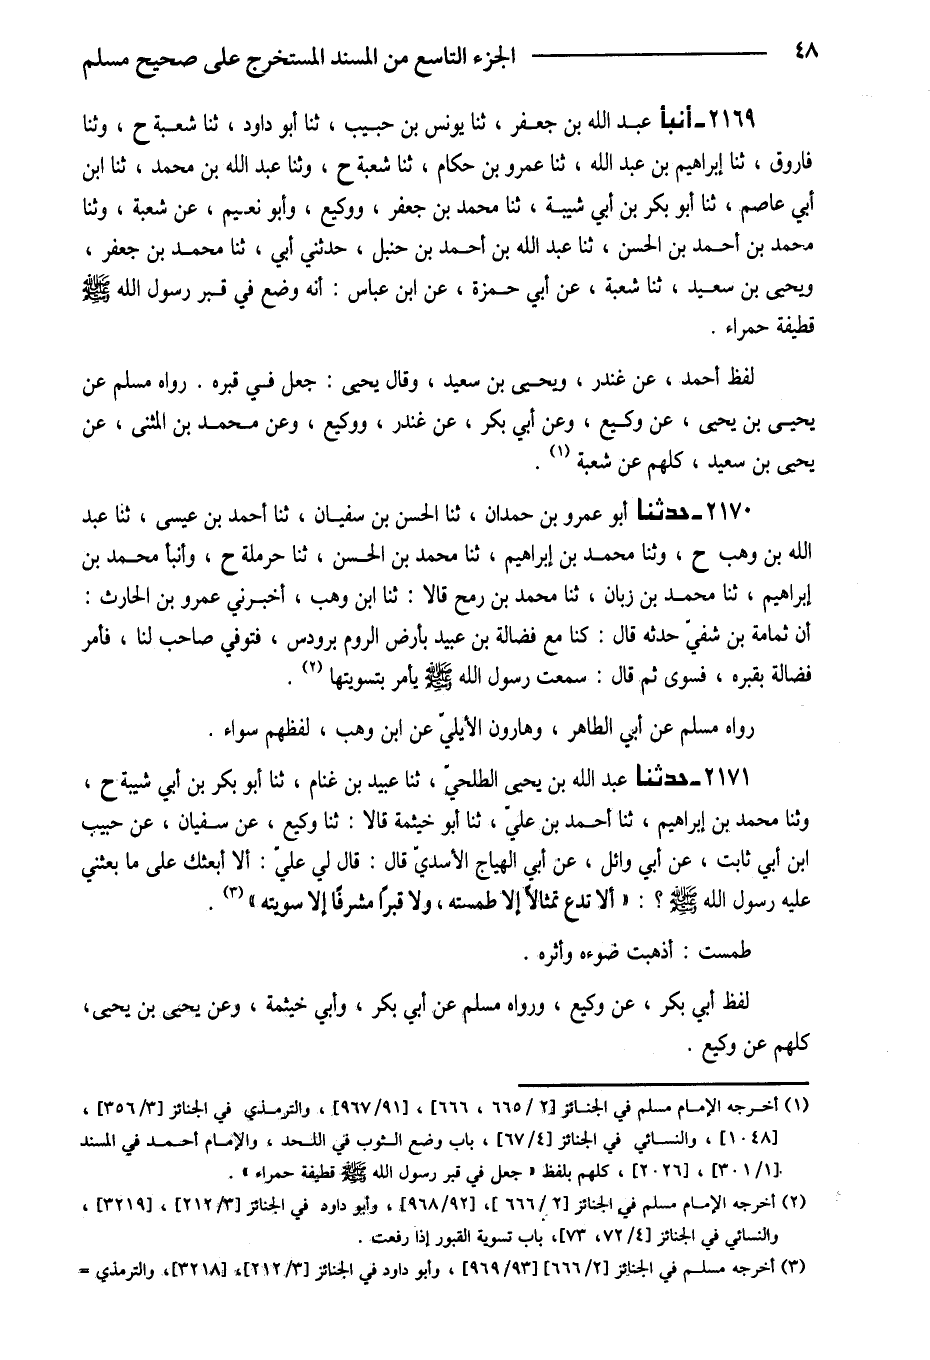 ٤٨ الجزء التاسع من المسند المستخرج على صحيح مسلم
٢١٦٩ـ أنبأ عبد الله بن جعفر ، ثنا يونس بن حبيب ، ثنا أبو داود ، ثنا شعبة ح ، وثنا
فاروق ، ثنا إبراهيم بن عبد الله ، ثنا عمرو بن حكام ، ثنا شعبة ح ، وثنا عبد الله بن محمد ، ثنا ابن
أبي عاصم ، ثنا أبو بكر بن أبي شيبة ، ثنا محمد بن جعفر ، ووكيع ، وأبو نعيم ، عن شعبة ، وثنا
محمد بن أحمد بن الحسن ، ثنا عبد الله بن أحمد بن حنبل ، حدثني أبي ، ثنا محمد بن جعفر ،
ويحيى بن سعيد ، ثنا شعبة ، عن أبي حمزة ، عن ابن عباس : أنه وضع في قبر رسول الله ﷺ
قطيفة حمراء .
لفظ أحمد ، عن غندر ، ويحيى بن سعيد ، وقال يحيى : جعل في قبره . رواه مسلم عن
يحيى بن يحيى ، عن وكيع ، وعن أبي بكر ، عن غندر ، ووكيع ، وعن محمد بن المثنى ، عن
يحيى بن سعيد ، كلهم عن شعبة (١) .
٢١٧٠ـ حدثنا أبو عمرو بن حمدان ، ثنا الحسن بن سفيان ، ثنا أحمد بن عيسى ، ثنا عبد
الله بن وهب ح ، وثنا محمد بن إبراهيم ، ثنا محمد بن الحسن ، ثنا حرملة ح ، وأنبأ محمد بن
إبراهيم ، ثنا محمد بن زبان ، ثنا محمد بن رمح قالا : ثنا ابن وهب ، أخبرني عمرو بن الحارث :
أن ثمامة بن شفيّ حدثه قال : كنا مع فضالة بن عبيد بأرض الروم برودس ، فتوفي صاحب لنا ، فأمر
فضالة بقبره ، فسوى ثم قال : سمعت رسول الله ﷺ يأمر بتسويتها (٢) .
رواه مسلم عن أبي الطاهر ، وهارون الأيليّ عن ابن وهب ، لفظهم سواء .
٢١٧١ـ حدثنا عبد الله بن يحيى الطلحيّ ، ثنا عبيد بن غنام ، ثنا أبو بكر بن أبي شيبة ح ،
وثنا محمد بن إبراهيم ، ثنا أحمد بن عليّ ، ثنا أبو خيثمة قالا : ثنا وكيع ، عن سفيان ، عن حبيب
ابن أبي ثابت ، عن أبي وائل ، عن أبي الهياج الأسديّ قال : قال لي عليّ : ألا أبعثك على ما بعثني
عليه رسول الله ﷺ ؟ : « ألا تدع تمثالاً إلا طمسته ، ولا قبرًا مشرفًا إلا سويته » (٣) .
طمست : أذهبت ضوءه وأثره .
لفظ أبي بكر ، عن وكيع ، ورواه مسلم عن أبي بكر ، وأبي خيثمة ، وعن يحيى بن يحيى ،
كلهم عن وكيع .
(١) أخرجه الإمام مسلم في الجنائز [٢/ ٦٦٥ ، ٦٦٦] ، [٩٦٧/٩١] ، والترمذي في الجنائز [٣٥٦/٣] ،
[١٠٤٨] ، والنسائي في الجنائز [٦٧/٤] ، باب وضع الثوب في اللحد ، والإمام أحمد في المسند
[٣٠١/١] ، [٢٠٢٦] ، كلهم بلفظ « جعل في قبر رسول الله ﷺ قطيفة حمراء » .
(٢) أخرجه الإمام مسلم في الجنائز [٢ /٦٦٦ ]، [٩٦٨/٩٢] ، وأبو داود في الجنائز [٢١٢/٣] ، [٣٢١٩] ،
والنسائي في الجنائز [٧٢/٤، ٧٣]، باب تسوية القبور إذا رفعت .
(٣) أخرجه مسلم في الجنائز [٦٦٦/٢] [٩٦٩/٩٣] ، وأبو داود في الجنائز [٢١٢/٣]، [٣٢١٨]، والترمذي =